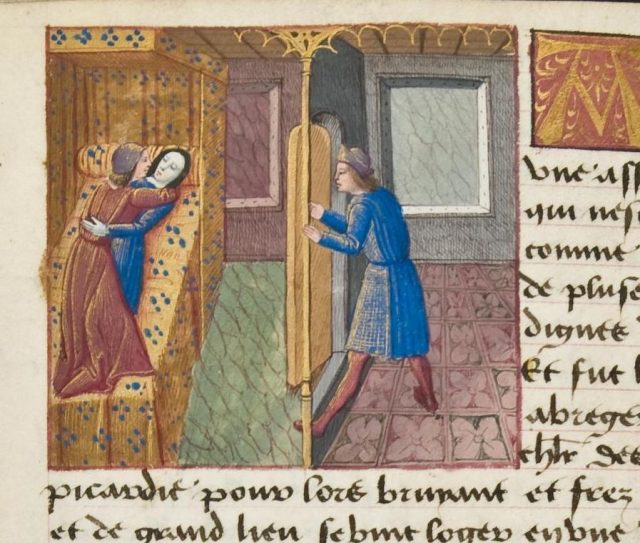 M
vne ass
qui nes
comme
de pluse
dignes
Et fut l
abreger
chlr des
picardie pour lors bruyant et frez
et de grand lieu se vint loger en vne